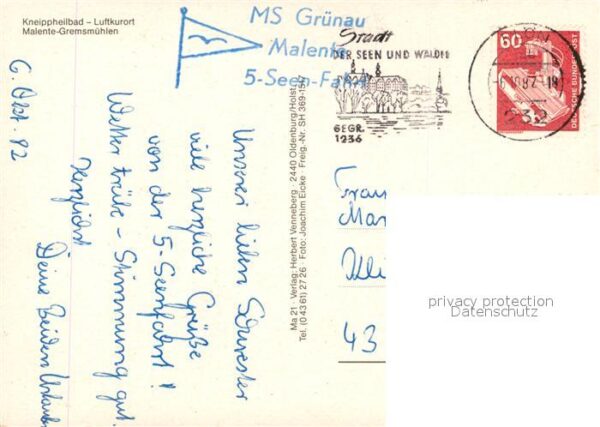 Kneippheilbad – Luftkurort
Malente-Gremsmühlen
MS Grünau
Malente
5-Seen-Fahrt
Stadt
DER SEEN UND WÄLDER
GEGR.
1236
60
DEUTSCHE BUNDESPOST
232
6. Okt. 82
Unserer lieben Schwester
viele herzliche Grüße
von der 5-Seenfahrt!
Wetter trübe – Stimmung gut.
Herzlichst
Deine beiden Urlauber
Ma 21 · Verlag: Herbert Venneberg · 2440 Oldenburg/Holst.
Tel. (0 43 61) 27 26 · Foto: Joachim Eicke · Freig.-Nr. SH 369-1547
Frau
Mar
43
privacy protection
Datenschutz